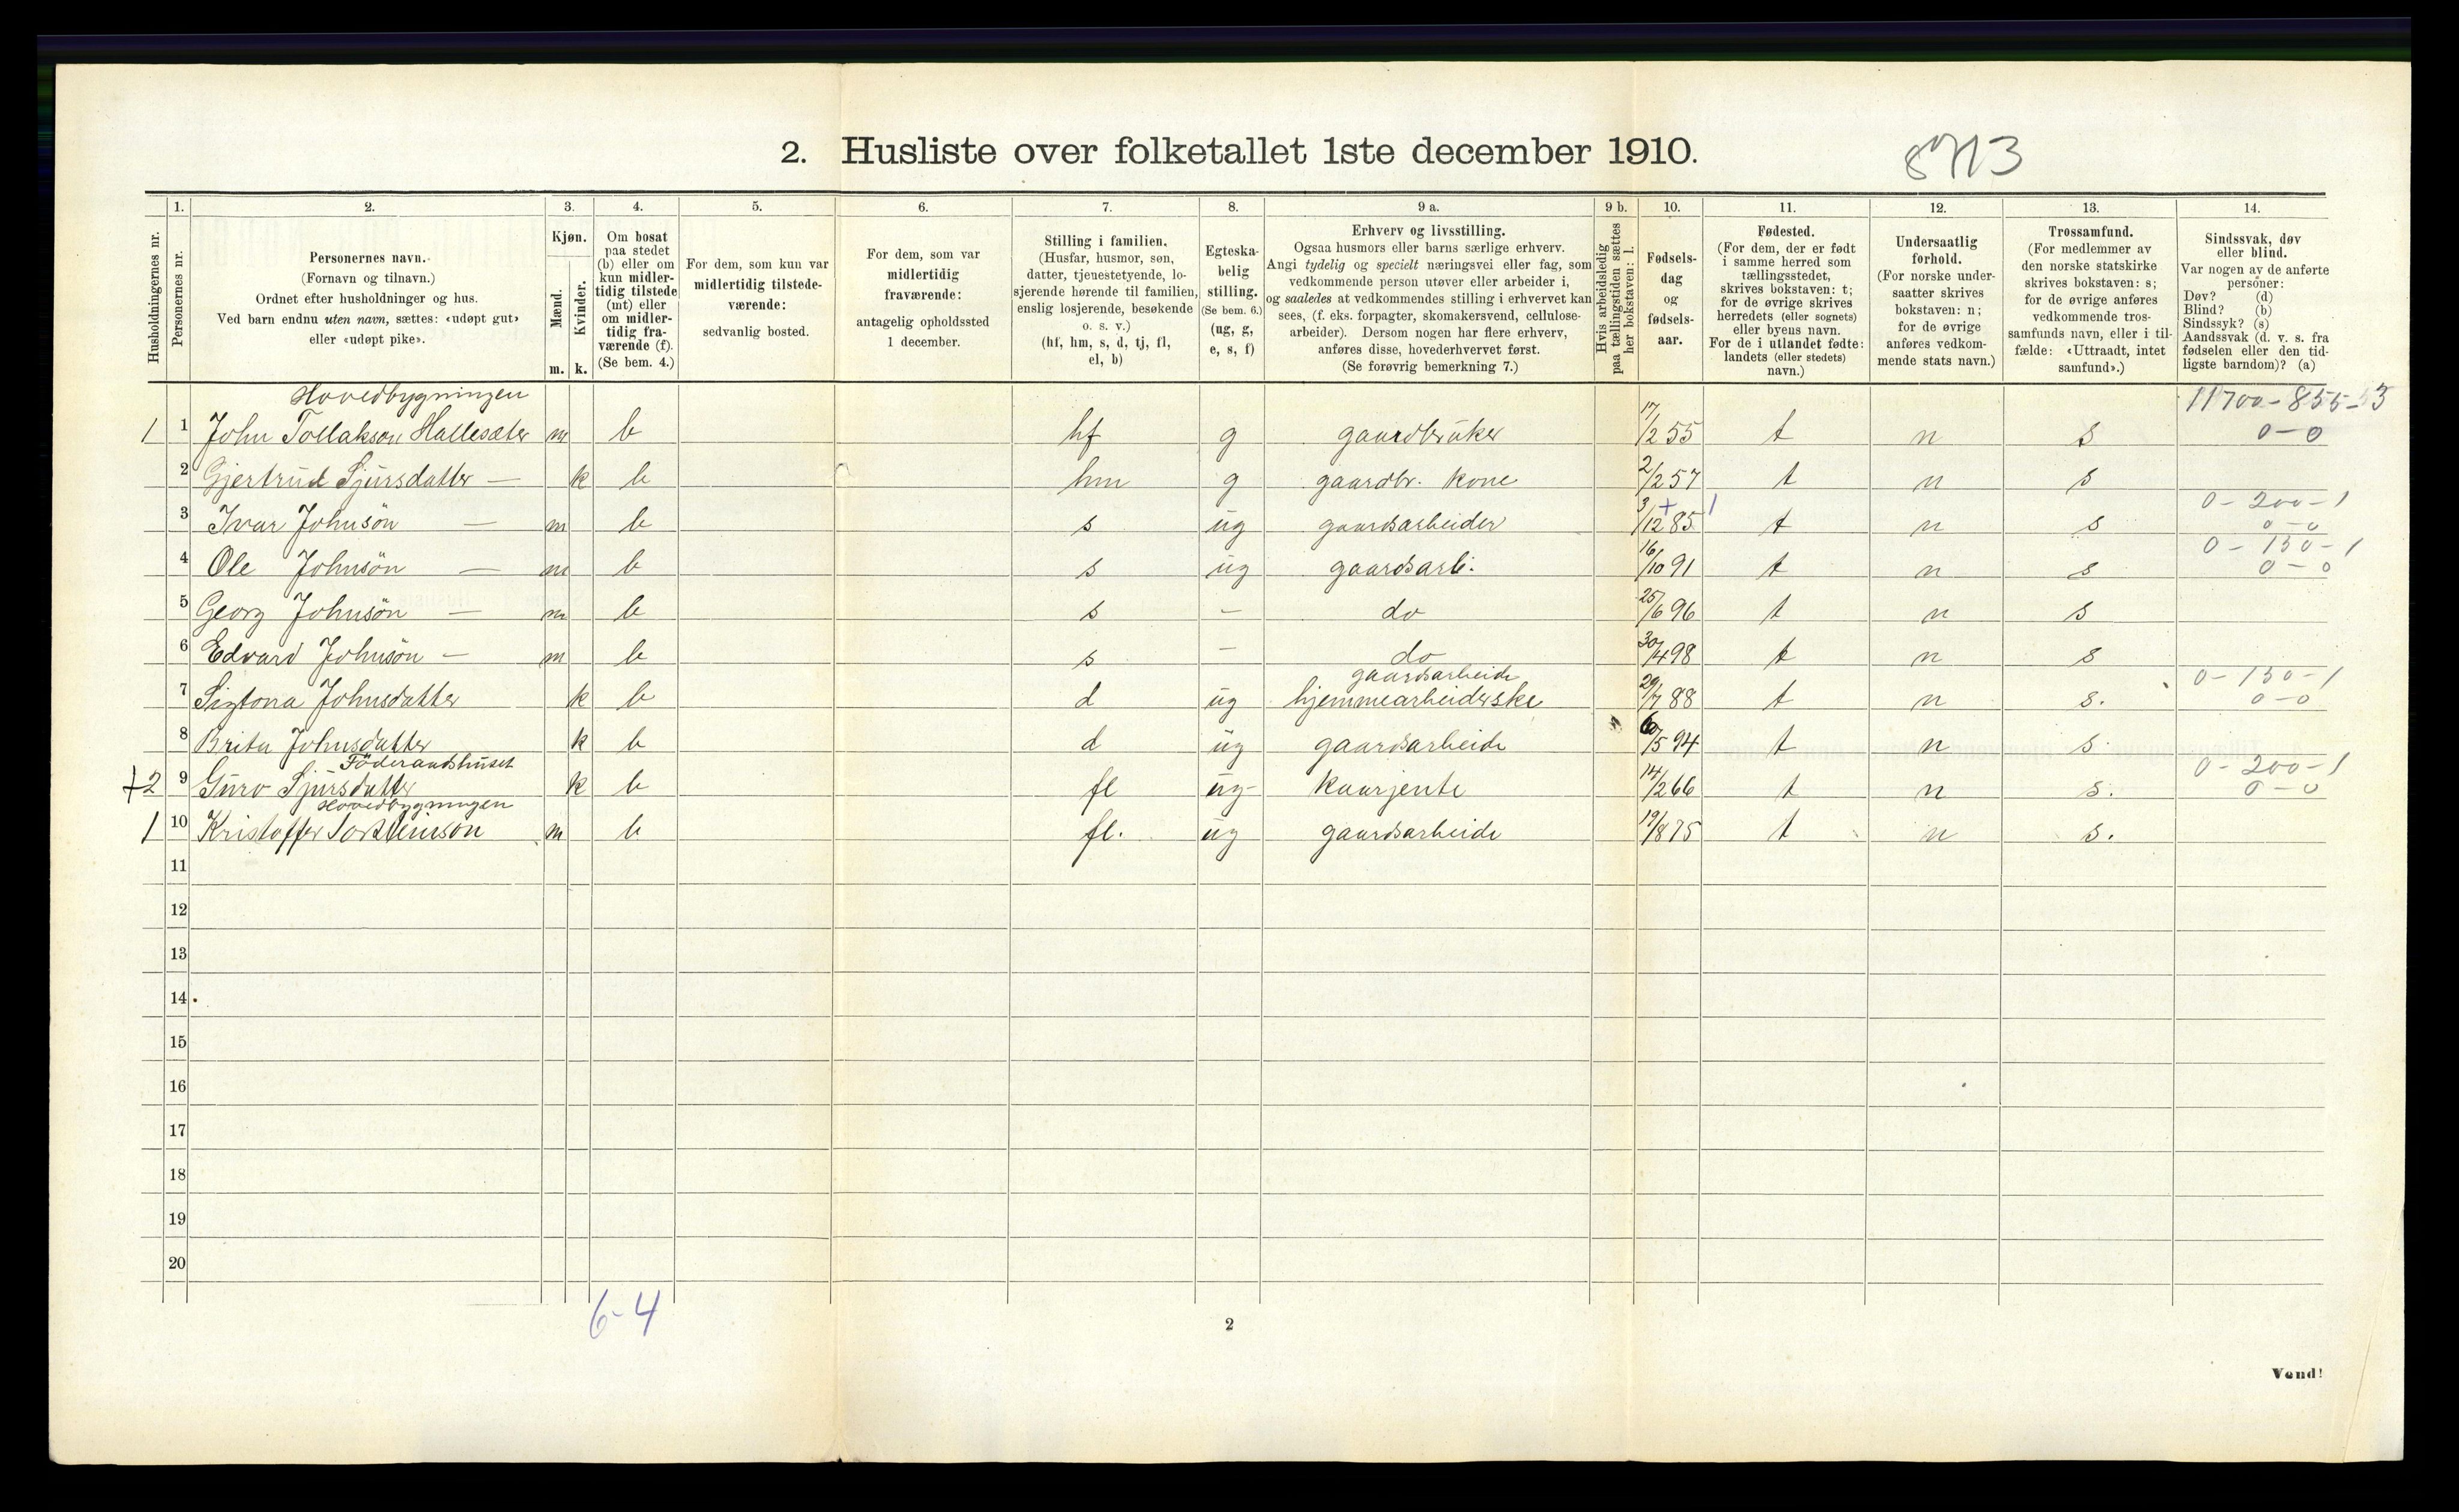 2. Husliste over folketallet 1ste december 1910.
8713
Husholdningernes nr.
1.
Personernes nr.
2.
Personernes navn.
(Fornavn og tilnavn.)
Ordnet efter husholdninger og hus.
Ved barn endnu uten navn, sættes: «udøpt gut»
eller «udøpt pike».
3.
Kjøn.
Mænd.
Kvinder.
m. k.
4.
Om bosat
paa stedet
(b) eller om
kun midler-
tidig tilstede
(mt) eller
om midler-
tidig fra-
værende (f).
(Se bem. 4.)
5.
For dem, som kun var
midlertidig tilstede-
værende:
sedvanlig bosted.
6.
For dem, som var
midlertidig
fraværende:
antagelig opholdssted
1 december.
7.
Stilling i familien.
(Husfar, husmor, søn,
datter, tjenestetyende, lo-
sjerende hørende til familien,
enslig losjerende, besøkende
o. s. v.)
(hf, hm, s, d, tj, fl,
el, b)
8.
Egteska-
belig
stilling.
(Se bem. 6.)
(ug, g,
e, s, f)
9 a.
Erhverv og livsstilling.
Ogsaa husmors eller barns særlige erhverv.
Angi tydelig og specielt næringsvei eller fag, som
vedkommende person utøver eller arbeider i,
og saaledes at vedkommendes stilling i erhvervet kan
sees, (f. eks. forpagter, skomakersvend, cellulose-
arbeider). Dersom nogen har flere erhverv,
anføres disse, hovederhvervet først.
(Se forøvrig bemerkning 7.)
9 b.
Hvis arbeidsledig
paa tællingstiden sættes
her bokstaven: l.
10.
Fødsels-
dag
og
fødsels-
aar.
11.
Fødested.
(For dem, der er født
i samme herred som
tællingsstedet,
skrives bokstaven: t;
for de øvrige skrives
herredets (eller sognets)
eller byens navn.
For de i utlandet fødte:
landets (eller stedets)
navn.)
12.
Undersaatlig
forhold.
(For norske under-
saatter skrives
bokstaven: n;
for de øvrige
anføres vedkom-
mende stats navn.)
13.
Trossamfund.
(For medlemmer av
den norske statskirke
skrives bokstaven: s;
for de øvrige anføres
vedkommende tros-
samfunds navn, eller i til-
fælde: «Uttraadt, intet
samfund».)
14.
Sindssvak, døv
eller blind.
Var nogen av de anførte
personer:
Døv? (d)
Blind? (b)
Sindssyk? (s)
Aandssvak (d. v. s. fra
fødselen eller den tid-
ligste barndom)? (a)
Hovedbygningen 11700-855-3
1 1 John Tollakson Hallesæter m b hf g gaardbrüker 17/2 55 t n s 0-0
2 Gjertrud Sjürsdatter — k b hm g gaardbr. kone 2/2 57 t n s
0-200-1
3 Ivar Johnsön — m b s üg gaardsarbeider 3/12 85 t n s 0-0
0-150-1
4 Ole Johnsön — m b s üg gaardsarb. 16/10 91 t n s 0-0
5 Georg Johnsön — m b s - do 25/6 96 t n s
6 Edvard Johnsön — m b s - do 30/4 98 t n s
gaardsarbeide 0-150-1
7 Sigtona Johnsdatter k b d üg hjemmearbeiderske 29/7 88 t n s. 0-0
8 Brita Johnsdatter k b d üg gaardsarbeide 6/5 94 t n s
Föderaadshüset 0-200-1
+2 9 Guro Sjürsdatter k b fl üg- kaarjente 14/2 66 t n s. 0-0
Hovedbygningen
1 10 Kristoffer Torsteinson m b fl. üg gaardsarbeide 19/8 75 t n s.
11
12
13
14
15
16
17
18
19
20
6-4
2
Vend!